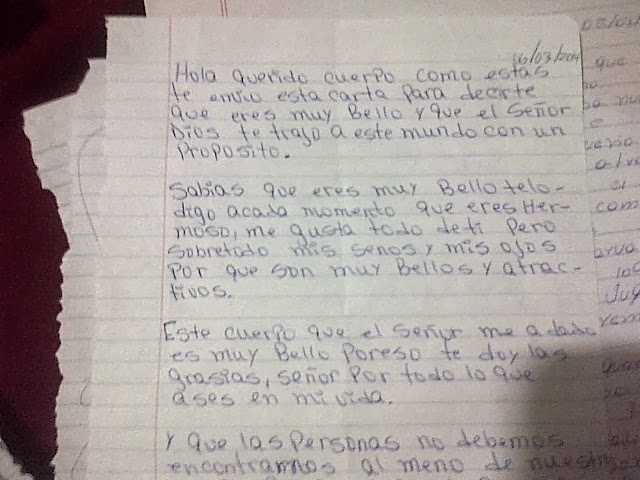 16/03/201
Hola querido cuerpo como estas
te envio esta carta para decirte
que eres muy Bello y que el Señor
Dios te trajo a este mundo con un
Proposito.
Sabias que eres muy Bello telo-
digo acada momento que eres Her-
moso, me gusta todo deti Pero
sobretodo mis senos y mis ojos
Por que son muy Bellos y atrac-
tivos.
Este cuerpo que el señor me a dado
es muy Bello Poreso te doy las
grasias, señor Por todo lo que
ases en mi vida.
Y que las Personas no debemos
encontrarnos al meno de nuestro
que
com